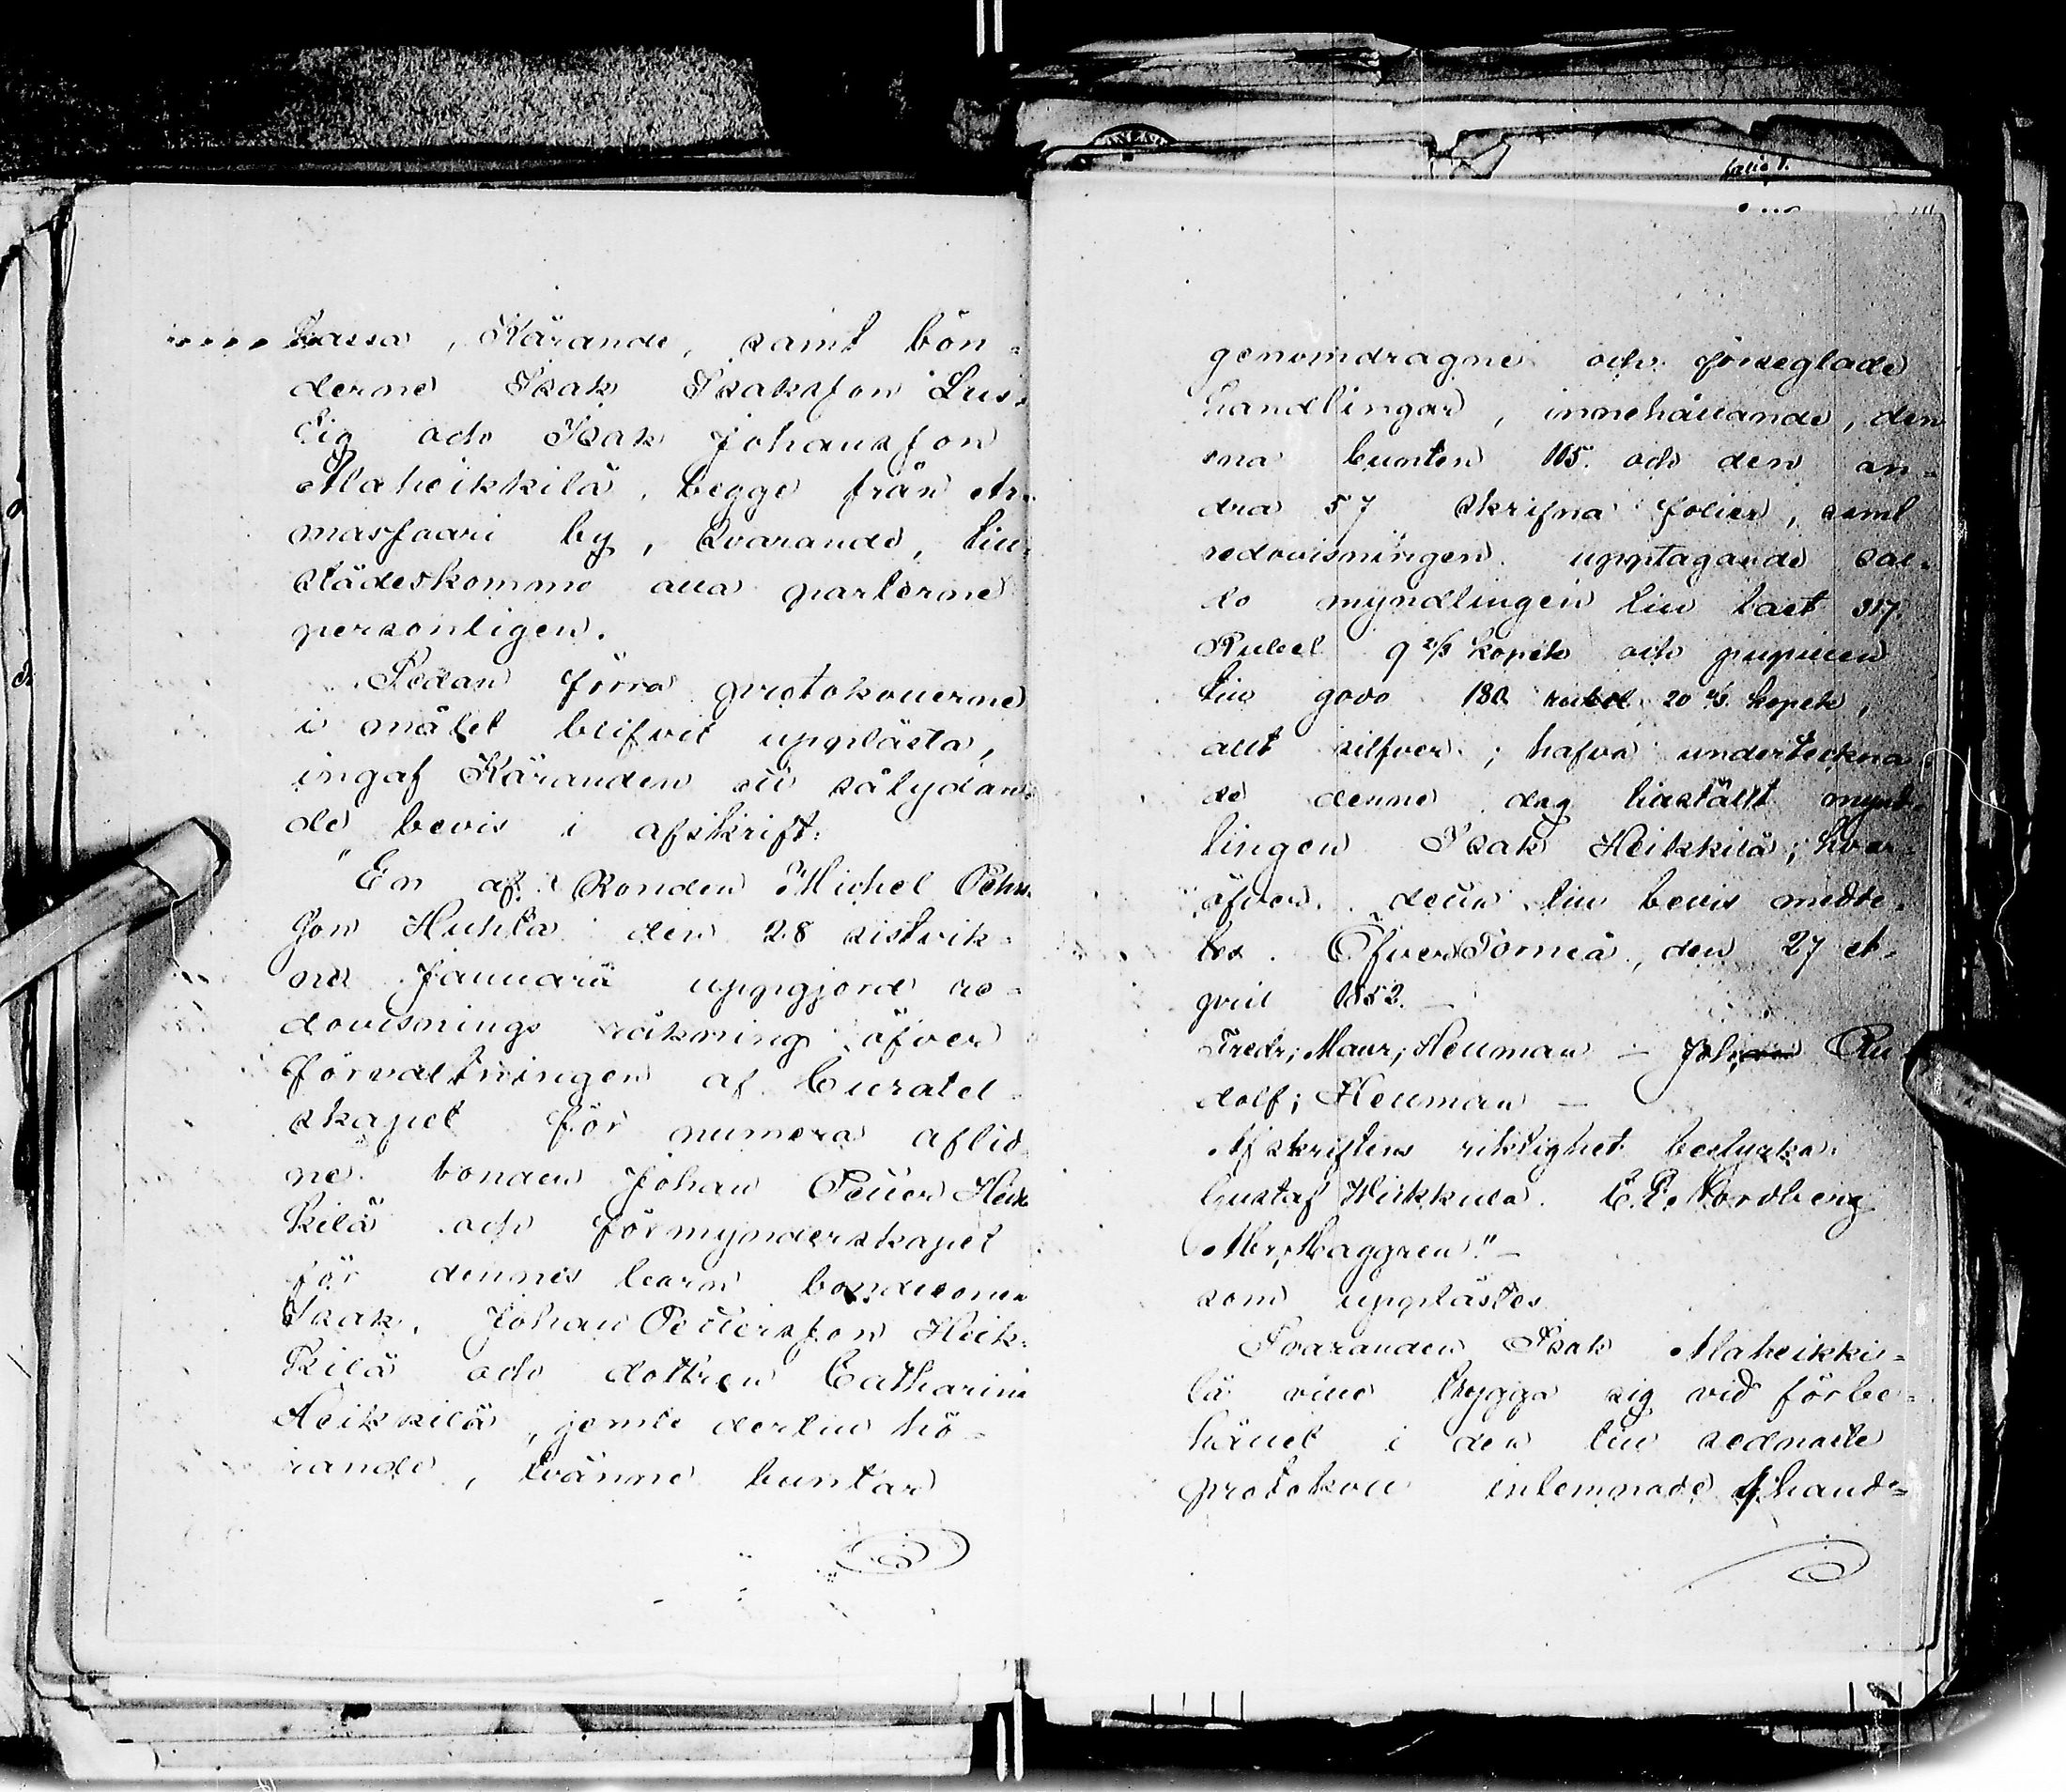 bassa, Kärande, samt bön-
derne Isak Isaksson Lus-
tig och Isak Johansson
Alaheikkilä, begge från Ar-
massaari by, Svarande, till-
städeskommo alla parterne
personligen.
Sedan förra protokollerne
i målet blifvit upplästa,
ingaf Käranden ett sålydan-
de bevis i afskrift:
"En af Bonden Michel Pehrs-
son Huhta den 28 sistvik-
ne Januarii uppgjord re-
dovisnings räkning öfver
förvaltningen af Curatel-
skapet för numera aflid-
ne bonden Johan Petter Heik-
kilä och förmynderskapet
för dennes barn bondesonen
Isak Johan Pettersson Heik-
kilä och dottren Catharina
Heikkilä, jemte dertill hö-
rande, tvänne buntar
folio 1.
genomdragne och förseglade
handlingar, innehållande, den
ena bunten 105. och den an-
dra 57 skrifna folier, samt
redovisningen upptagande sal-
do myndlingen till last 317.
Rubel 9 2/3 kopek och pupillen
till godo 180 rubel 20 2/3 kopek,
allt silfver; hafva underteckna-
de denne dag tillställt mynd-
lingen Isak Heikkilä; hvar-
öfver detta till bevis medde-
les. Öfver Torneå, den 27 A-
pril 1852. —
Fredr; Maur; Heuman — Joh; Ru-
dolf; Heuman —
Afskriftens riktighet bestyrka:
Gustaf Heikkilä. C. P. Nordberg
Abr; Haggren." —
som upplästes.
Svaranden Isak Alaheikki-
lä ville trygga sig vid förbe-
hållet i den till sednaste
protokoll inlemnade afhand-